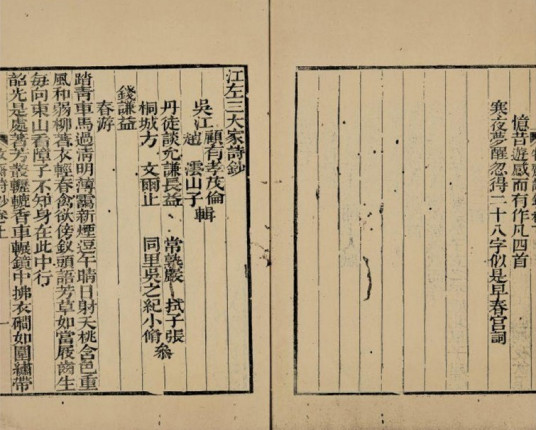 憶昔遊感而有作凡四首
寒夜夢醒忽得二十八字似是早春宮詞
江左三大家詩鈔
吳江
顧有孝茂倫
趙澐山子
輯
丹徒談允謙長益 常熟嚴栻子張
桐城方文爾止 同里吳之紀小脩
叅
錢謙益
春游
踏青車馬過清明薄靄新煙逗午晴日射夭桃含色重
風和弱柳著衣輕春禽欲傍釵頭語芳草如當屐齒生
每向東山看障子不知身在此中行
韶光是處著芳叢轣轆香車輾鏡中拂衣磵如圍繡帶